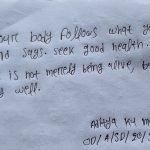 your body follows what y
nd says. seek good health.
is not merely being alive, b
g well.
Aditya Ku m
OD/A/SD/